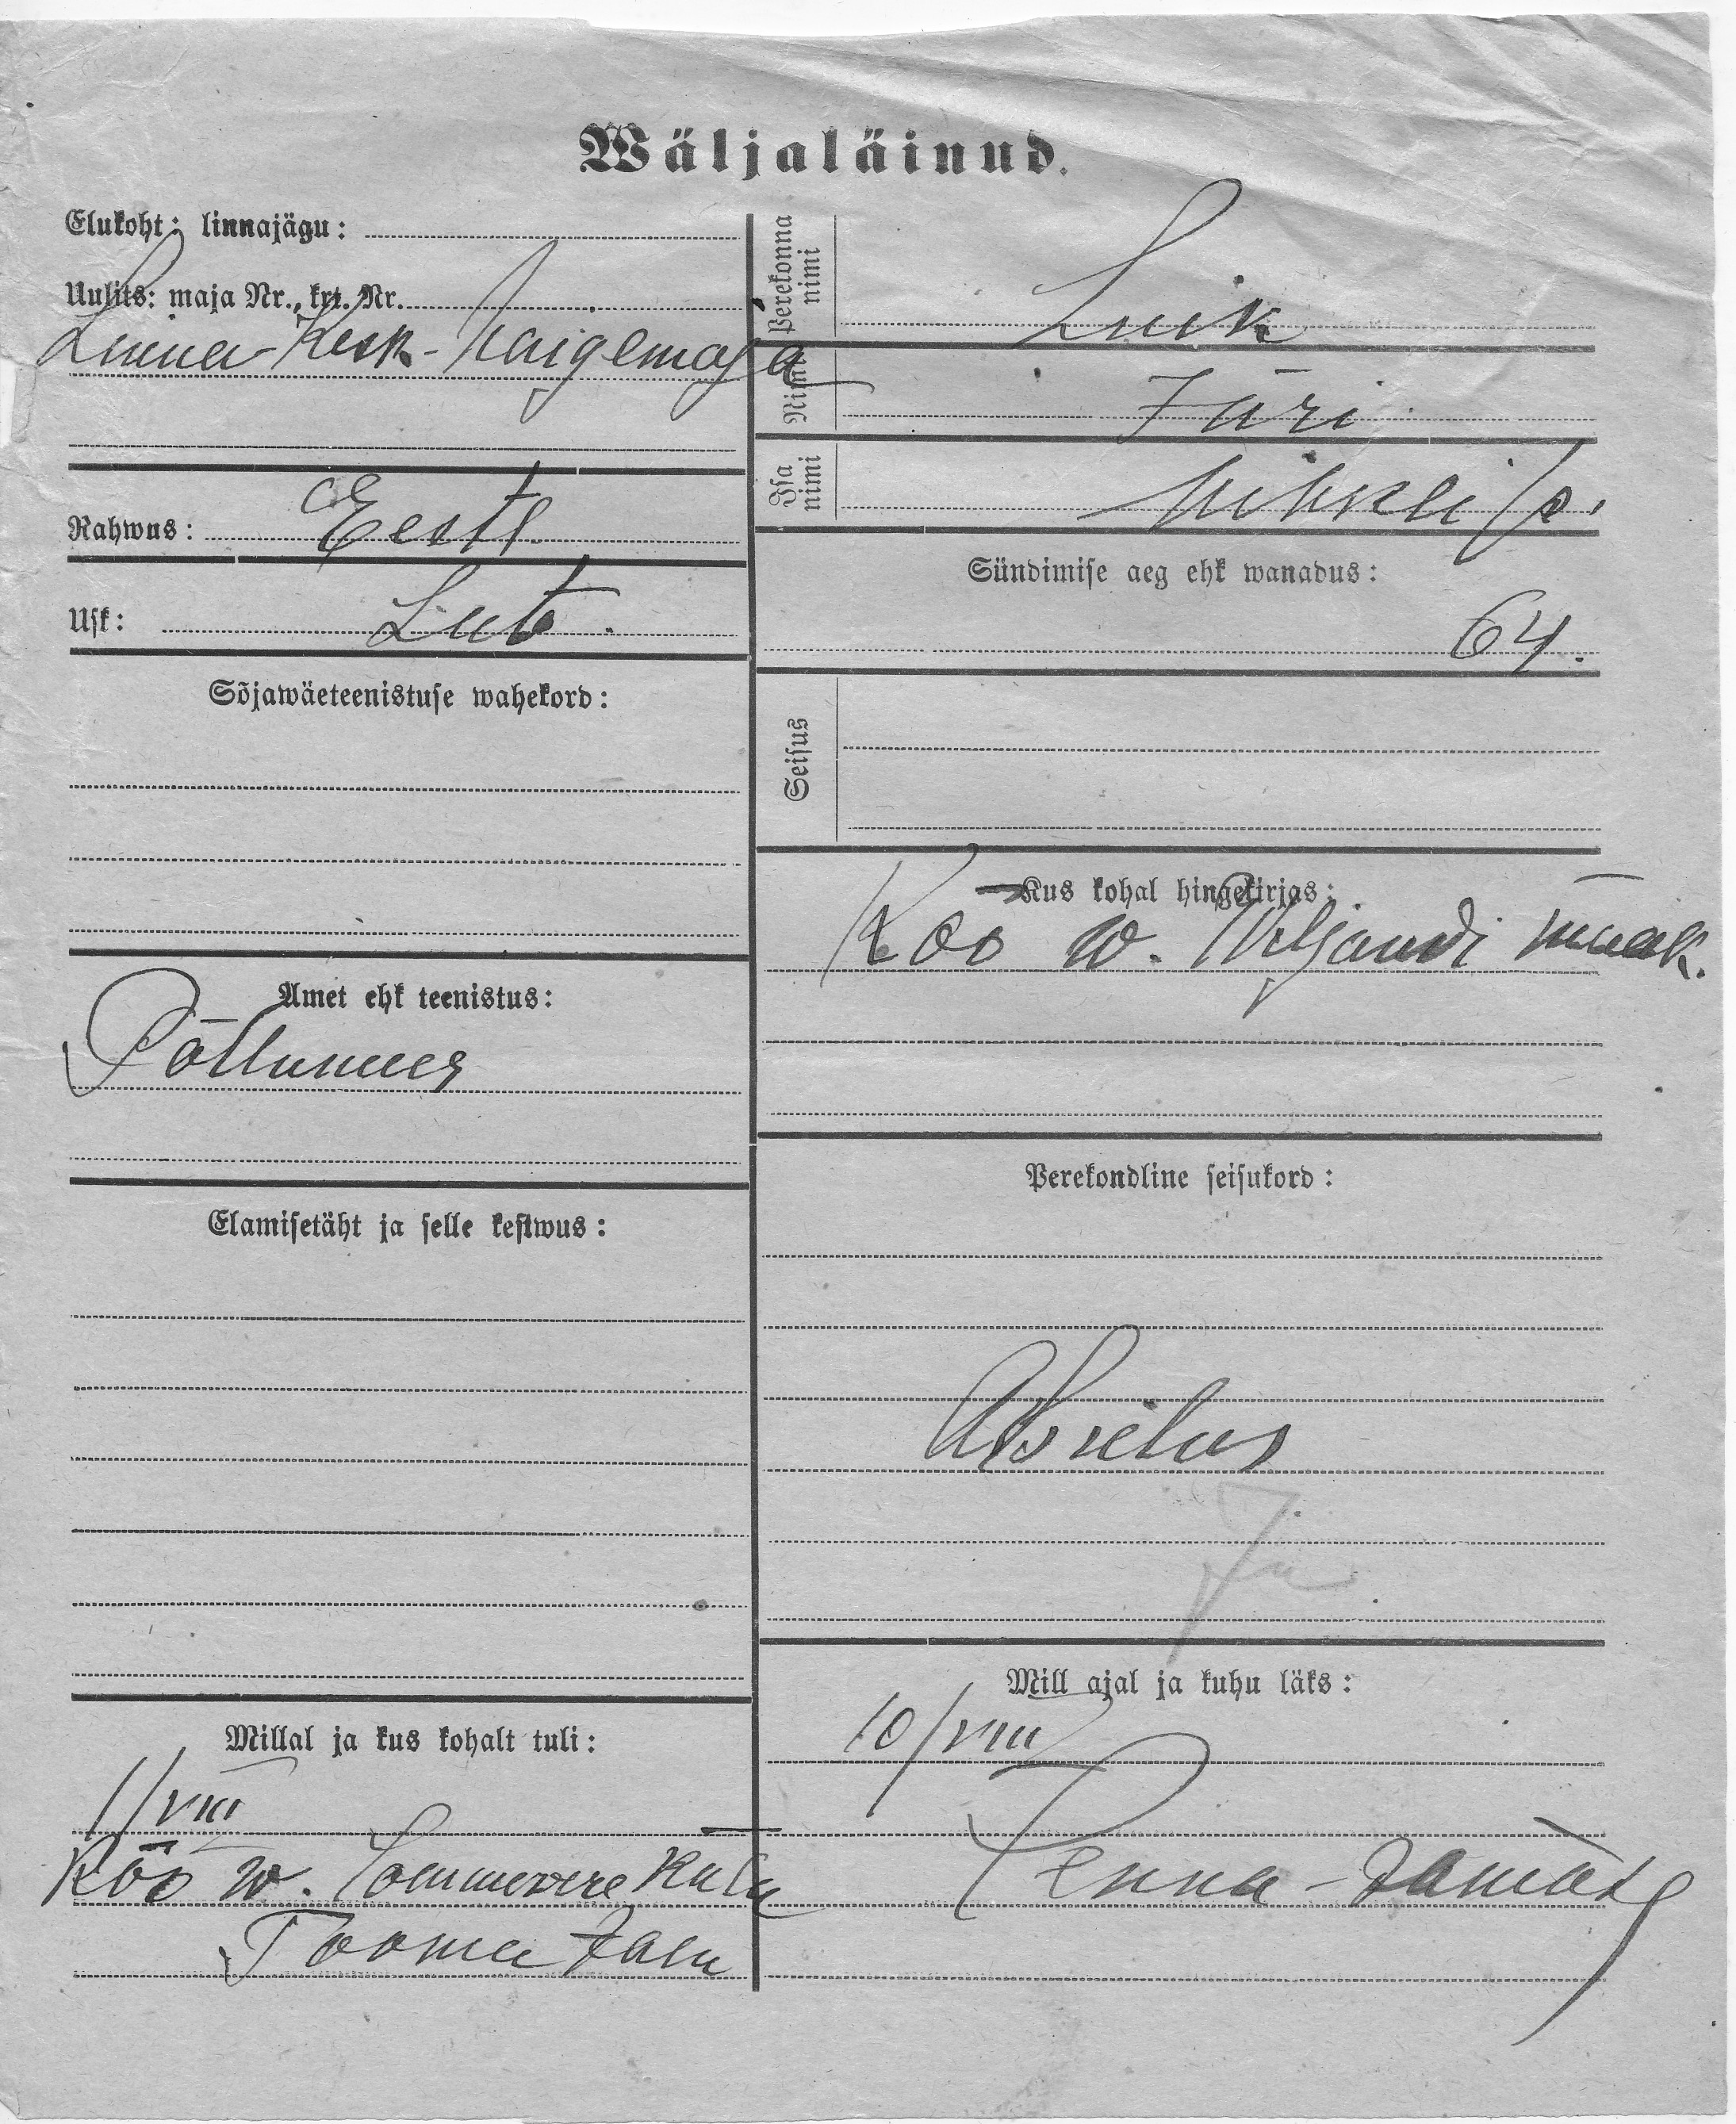 Wäljaläinud.
Elukoht: linnajägu:
Uulits: maja Nr., krt. Nr.
Linna Kesk-Haigemaja
Rahwus: Eesti
Usk: Lut.
Sõjawäeteenistuse wahekord:
Amet ehk teenistus:
Põllumees
Elamisetäht ja selle kestwus:
Millal ja kus kohalt tuli:
1/VIII
Kõo w. Sommewere küla
Tooma talu
Perekonna nimi
Luik
Nimi
Jüri
Isa nimi
Mihkli p.
Sündimise aeg ehk wanadus:
64.
Seisus
Kus kohal hingekirjas:
Kõo w. Wiljandi maak.
Perekondline seisukord:
Abielus
Mill ajal ja kuhu läks:
10/VIII